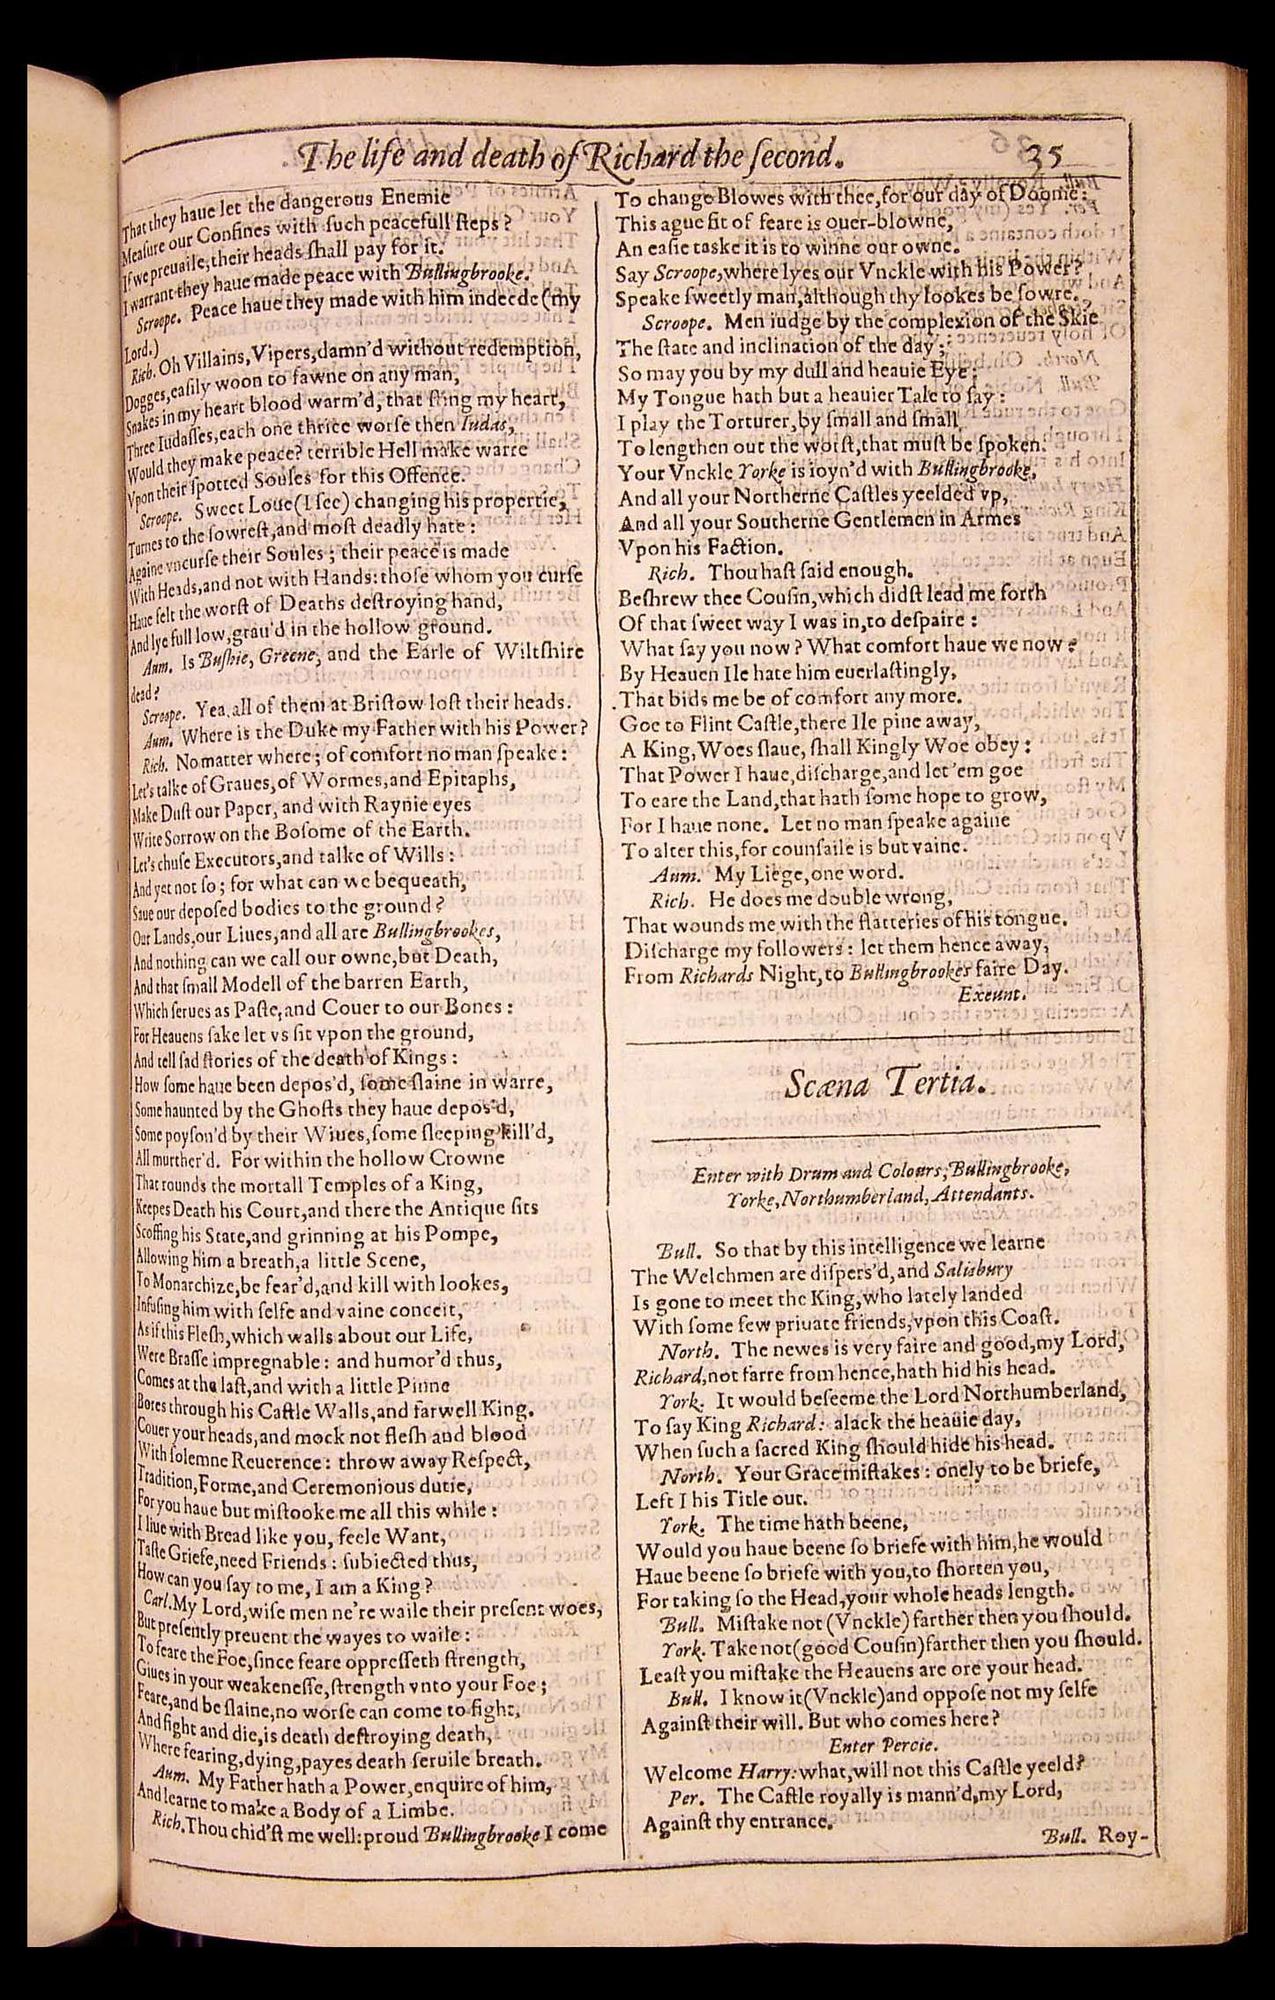 The life and death of Richard the second. 35
That they haue let the dangerous Enemie
Measure our Confines with such peacefull steps?
If we preuaile, their heads shall pay for it.
I warrant they haue made peace with Bullingbrooke.
Scroope. Peace haue they made with him indeede (my
Lord.)
Rich. Oh Villains, Vipers, damn'd without redemption,
Dogges, easily woon to fawne on any man,
Snakes in my heart blood warm'd, that sting my heart,
Three Iudasses, each one thrice worse then Iudas,
Would they make peace? terrible Hell make warre
Vpon their spotted Soules for this Offence.
Scroope. Sweet Loue (I see) changing his propertie,
Turnes to the sowrest, and most deadly hate:
Againe vncurse their Soules; their peace is made
With Heads, and not with Hands: those whom you curse
Haue felt the worst of Deaths destroying hand,
And lye full low, grau'd in the hollow ground.
Aum. Is Bushie, Greene, and the Earle of Wiltshire
dead?
Scroope. Yea, all of them at Bristow lost their heads.
Aum. Where is the Duke my Father with his Power?
Rich. No matter where; of comfort no man speake:
Let's talke of Graues, of Wormes, and Epitaphs,
Make Dust our Paper, and with Raynie eyes
Write Sorrow on the Bosome of the Earth.
Let's chuse Executors, and talke of Wills:
And yet not so; for what can we bequeath,
Saue our deposed bodies to the ground?
Our Lands, our Liues, and all are Bullingbrookes,
And nothing can we call our owne, but Death,
And that small Modell of the barren Earth,
Which serues as Paste, and Couer to our Bones:
For Heauens sake let vs sit vpon the ground,
And tell sad stories of the death of Kings:
How some haue been depos'd, some slaine in warre,
Some haunted by the Ghosts they haue depos'd,
Some poyson'd by their Wiues, some sleeping kill'd,
All murther'd. For within the hollow Crowne
That rounds the mortall Temples of a King,
Keepes Death his Court, and there the Antique sits
Scoffing his State, and grinning at his Pompe,
Allowing him a breath, a little Scene,
To Monarchize, be fear'd, and kill with lookes,
Infusing him with selfe and vaine conceit,
As if this Flesh, which walls about our Life,
Were Brasse impregnable: and humor'd thus,
Comes at the last, and with a little Pinne
Bores through his Castle Walls, and farwell King.
Couer your heads, and mock not flesh and blood
With solemne Reuerence: throw away Respect,
Tradition, Forme, and Ceremonious dutie,
For you haue but mistooke me all this while:
I liue with Bread like you, feele Want,
Taste Griefe, need Friends: subiected thus,
How can you say to me, I am a King?
Carl. My Lord, wise men ne're waile their present woes,
But presently preuent the wayes to waile:
To feare the Foe, since feare oppresseth strength,
Giues in your weakenesse, strength vnto your Foe;
Feare, and be slaine, no worse can come to fight,
And fight and die, is death destroying death,
Where fearing, dying, payes death seruile breath.
Aum. My Father hath a Power, enquire of him,
And learne to make a Body of a Limbe.
Rich. Thou chid'st me well: proud Bullingbrooke I come
To change Blowes with thee, for our day of Doome:
This ague fit of feare is ouer-blowne,
An easie taske it is to winne our owne.
Say Scroope, where lyes our Vnckle with his Power?
Speake sweetly man, although thy lookes be sowre.
Scroope. Men iudge by the complexion of the Skie
The state and inclination of the day;
So may you by my dull and heauie Eye:
My Tongue hath but a heauier Tale to say:
I play the Torturer, by small and small
To lengthen out the worst, that must be spoken.
Your Vnckle Yorke is ioyn'd with Bullingbrooke,
And all your Northerne Castles yeelded vp,
And all your Southerne Gentlemen in Armes
Vpon his Faction.
Rich. Thou hast said enough.
Beshrew thee Cousin, which didst lead me forth
Of that sweet way I was in, to despaire:
What say you now? What comfort haue we now?
By Heauen Ile hate him euerlastingly,
That bids me be of comfort any more.
Goe to Flint Castle, there Ile pine away,
A King, Woes slaue, shall Kingly Woe obey:
That Power I haue, discharge, and let 'em goe
To eare the Land, that hath some hope to grow,
For I haue none. Let no man speake againe
To alter this, for counsaile is but vaine.
Aum. My Liege, one word.
Rich. He does me double wrong,
That wounds me with the flatteries of his tongue.
Discharge my followers: let them hence away,
From Richards Night, to Bullingbrookes faire Day.
Exeunt.
Scæna Tertia.
Enter with Drum and Colours, Bullingbrooke,
Yorke, Northumberland, Attendants.
Bull. So that by this intelligence we learne
The Welchmen are dispers'd, and Salisbury
Is gone to meet the King, who lately landed
With some few priuate friends, vpon this Coast.
North. The newes is very faire and good, my Lord,
Richard, not farre from hence, hath hid his head.
York. It would beseeme the Lord Northumberland,
To say King Richard: alack the heauie day,
When such a sacred King should hide his head.
North. Your Grace mistakes: onely to be briefe,
Left I his Title out.
York. The time hath beene,
Would you haue beene so briefe with him, he would
Haue beene so briefe with you, to shorten you,
For taking so the Head, your whole heads length.
Bull. Mistake not (Vnckle) farther then you should.
York. Take not (good Cousin) farther then you should.
Least you mistake the Heauens are ore your head.
Bull. I know it (Vnckle) and oppose not my selfe
Against their will. But who comes here?
Enter Percie.
Welcome Harry: what, will not this Castle yeeld?
Per. The Castle royally is mann'd, my Lord,
Against thy entrance.
Bull. Roy-